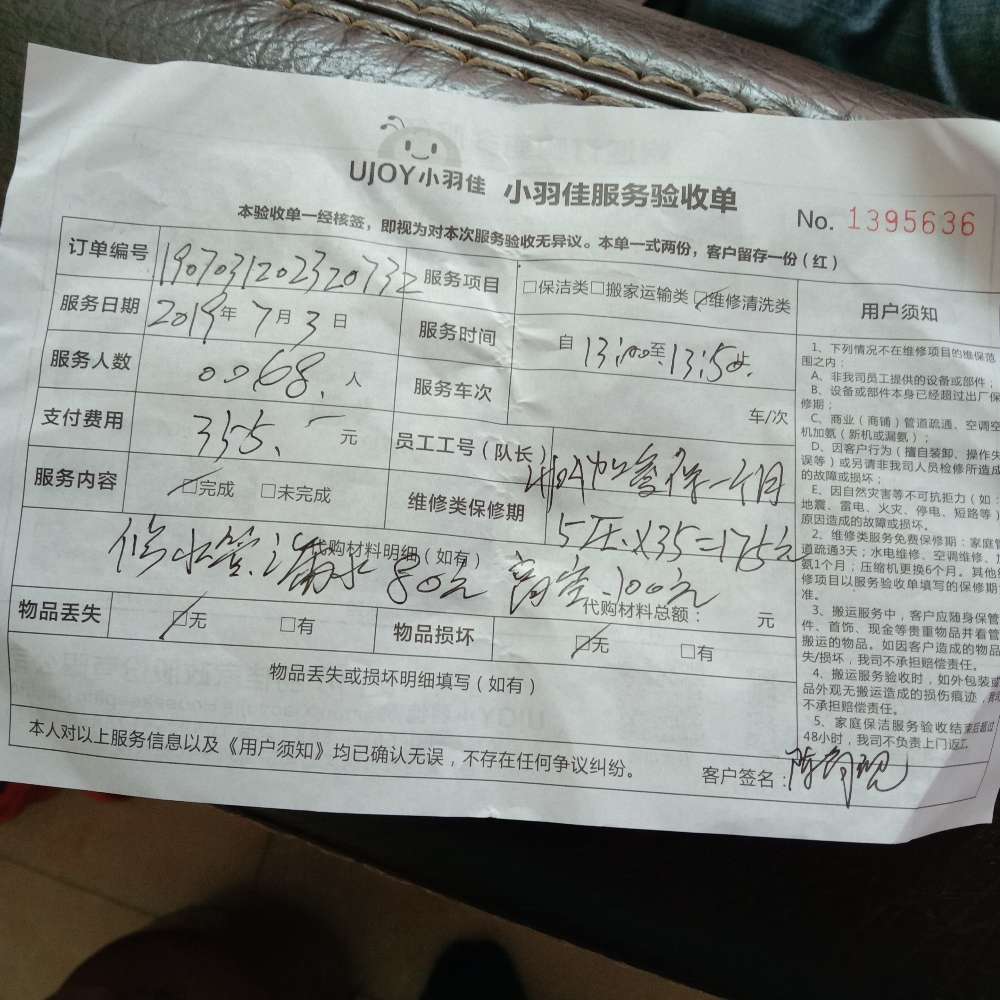 UJOY小羽佳 小羽佳服务验收单
No. 1395636
本验收单一经核签，即视为对本次服务验收无异议。本单一式两份，客户留存一份（红）
订单编号 1907031202320732 服务项目 □保洁类□搬家运输类☑维修清洗类
服务日期 2019年7月3日 服务时间 自13:00至13:50
服务人数 0068. 人 服务车次 车/次
支付费用 355.— 元 员工工号（队长）
服务内容 ☑完成 □未完成 维修类保修期 保一个月
5压X35=175元
代购材料明细（如有）
修水管漏水80元 100元
代购材料总额： 元
物品丢失 ☑无 □有 物品损坏 ☑无 □有
物品丢失或损坏明细填写（如有）
本人对以上服务信息以及《用户须知》均已确认无误，不存在任何争议纠纷。
客户签名：
用户须知
1、下列情况不在维修项目的维保范
围之内：
A、非我司员工提供的设备或部件；
B、设备或部件本身已经超过出厂保
修期；
C、商业（商铺）管道疏通、空调空
机加氨（新机或漏氨）；
D、因客户行为（擅自装卸、操作失
误等）或另请非我司人员检修所造成
的故障或损坏；
E、因自然灾害等不可抗拒力（如：
地震、雷电、火灾、停电、短路等）
原因造成的故障或损坏。
2、维修类服务免费保修期：家庭管
道疏通3天；水电维修、空调维修、
氨1个月；压缩机更换6个月。其他
修项目以服务验收单填写的保修期
准。
3、搬运服务中，客户应随身保管
件、首饰、现金等贵重物品并看管
搬运的物品。如因客户造成的物品
失/损坏，我司不承担赔偿责任。
4、搬运服务验收时，如外包装或
品外观无搬运造成的损伤痕迹，
不承担赔偿责任。
5、家庭保洁服务验收结束后超过
48小时，我司不负责上门返工